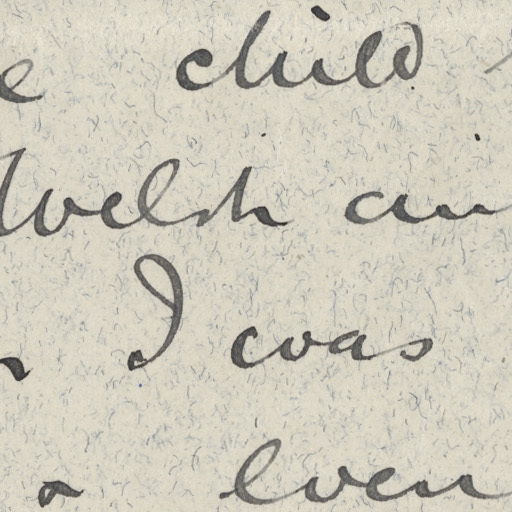 child
Welsh
I was
a even